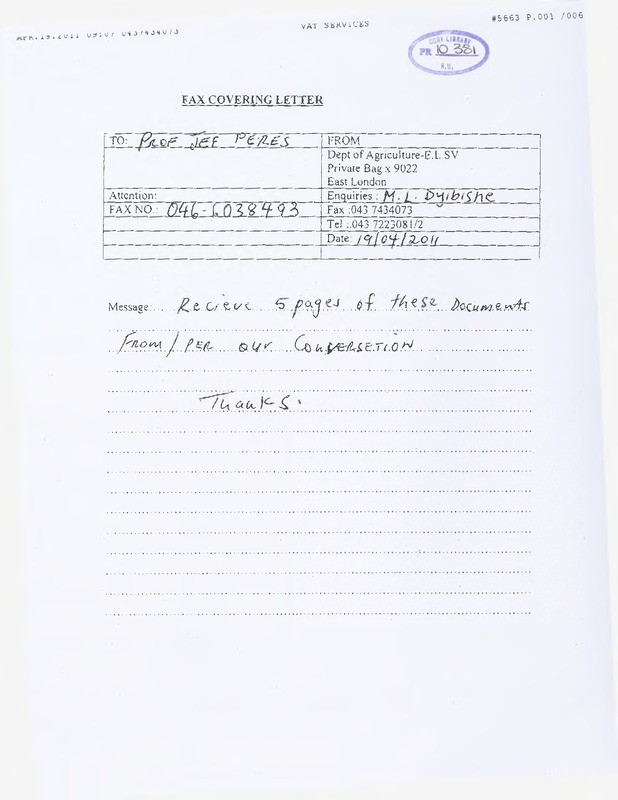 APR.19.2011 09:07 0437434073
VAT SERVICES
#5663 P.001 /006
CORY LIBRARY
PR 10 381
R.U.
FAX COVERING LETTER
TO: PROF JEF PERES
FROM
Dept of Agriculture-E.L SV
Private Bag x 9022
East London
Attention:
Enquiries : M. L. Dyibishe
FAX NO : 046-6038493
Fax :043 7434073
Tel :.043 7223081/2
Date: 19/04/2011
Message: Recieve 5 pages of these Documents
From / PER our CONVERSETION
Thanks.